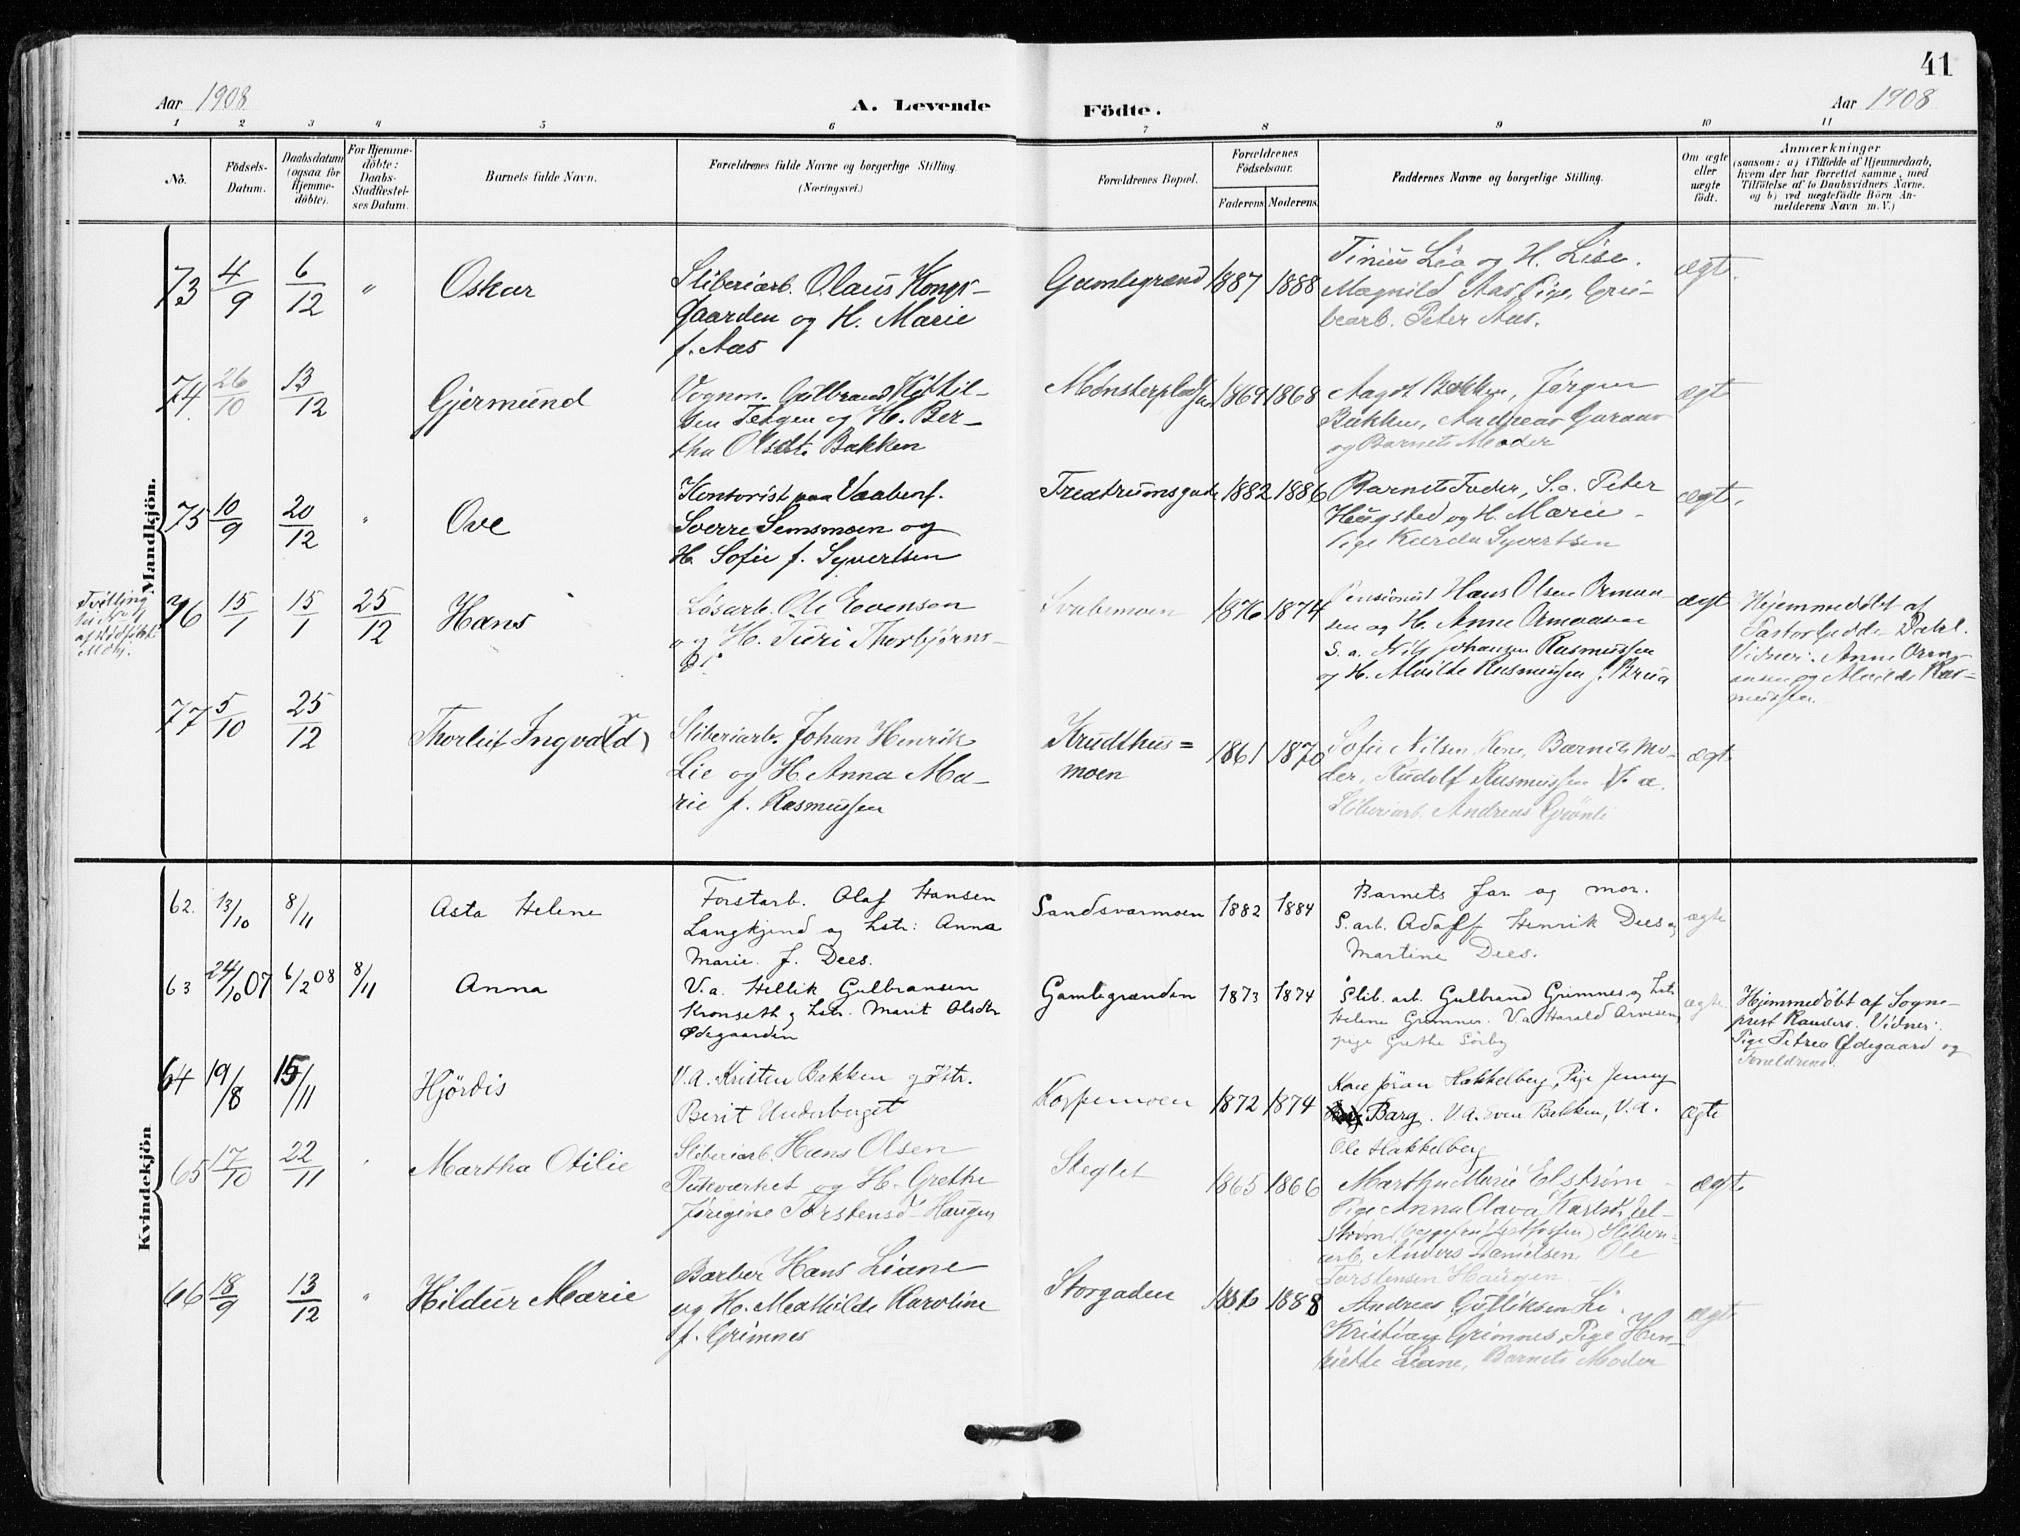 41
Aar 1908
A. Levende Födte.
Aar 1908
1 2 3 4 5 6 7 8 9 10 11
No.
Födsels-
Datum.
Daabsdatum
(ogsaa for
Hjemme-
döbte).
For Hjemme-
döbte:
Daabs-
Stadfæstel-
ses Datum.
Barnets fulde Navn.
Forældrenes fulde Navne og borgerlige Stilling.
(Næringsvei.)
Forældrenes Bopæl.
Forældrenes
Födselsaar.
Faderens Moderens
Faddernes Navne og borgerlige Stilling.
Om ægte
eller
uægte
födt.
Anmærkninger
(saasom: a) i Tilfælde af Hjemmedaab,
hvem der har forrettet samme, med
Tilföielse af to Daabsvidners Navne,
og b) ved uægtefödte Börn An-
melderens Navn m. V.)
Mandkjön.
73 4/9 6/12 " Oskar
Sliberiarb. Olaus Kongs-
gaarden og H. Marie
f. Aas
Gamlegrænd 1887 1888
Tinius Lia og H. Lise.
Magnild Aas, Pige, Gru-
bearb. Peter Aas.
ægte.
74 26/10 13/12 Gjermund
Vognm. Gulbrand Kittil-
sen Tetgen og H. Ber-
tha Olsdt. Bakken
Mønsterpladsen 1869 1868
Aagot Bakken, Jørgen
Bakken, Andreas
og Barnets Moder
ægt
75 10/9 20/12 " Ove
Kontorist paa Vaabenf.
Sverre Semsmoen og
H. Sofie f. Syvertsen
1882 1886
Barnets Fader, S.a. Peter
Haugsted og H. Marie
Pige Karda Syvertsen
ægte.
Tvilling
76 15/1 15/1 25/12 Hans
Løsarb. Ole Evensen
og H. Turi Thorbjørns-
dt.
Svabemoen 1876 1874
Pensionist Hans Olsen Orman-
sen og H. Anne Ormaasen
S.a. Nils Johansen Rasmussen
og H. Alvilde Rasmussen f. Brua
ægt
Hjemmedøbt af
Pastor
Vidner: Anne Orm-
aasen og Alvilde Ras=
mussen.
77 5/10 25/12 Thorleif Ingvald
Sliberiarb. Johan Henrik
Lie og H. Anna Ma-
rie f. Rasmussen
Krudthus=
moen
1861 1870
Sofie Nilsen, Kone, Barnets Mo-
der, Rudolf Rasmussen V.a.
Sliberiarb. Andreas Grønli
ægt.
Kvindekjön
62. 13/10 8/11 Asta Helene
Forstarb. Olaf Hansen
Langkjend og hstr: Anna
Marie f. Dees.
Sandsværmoen 1882 1884
Barnets far og mor.
S.arb. Adolf Henrik Dees og
Martine Dees.
ægte
63 24/10 07 6/2 08 8/11 Anna
V.a. Hellik Gulbransen
Kronseth og hstr. Marit Olsdtr
Ødegaarden
Gamlegrænden 1873 1874
Slib. arb. Gulbrand Grimnes og hstr
Helene Grimnes. V.a. Harald Arvesen,
pige Grethe Sørby
ægte.
Hjemmedøbt af Sogne-
prest Randers. Vidner:
Pige Petrea Ødegaard og
Forældrene.
64 19/8 15/11 Hjørdis
V.A. Kristen Bakken og Hstr.
Berit Underberget
Koppemoen 1872 1874
Kone Jøran Hakkelberg, Pige Jenny
Barg. V.A. Sven Bakken, V.A.
Ole Hakkelberg
ægte
65 17/10 22/11 " Martha Otilie
Sliberiarb. Hans Olsen
Pukværket og H. Grethe
Jørgine Torstensd. Haugen
Steglet 1865 1866
Martha Marie Elstrøm
Pige Anna Olava Karlsd. El-
strøm Sliberi-
arb. Anders Danielsen Ole
Torstensen Haugen.
ægte
66 18/9 13/12 " Hildur Marie
Barber Hans Liane
og H. Mathilde Karoline
f. Grimnes
Storgaden 1886 1888
Andreas Gulliksen Li.
Kristian Grimnes, Pige Hen-
riette Liane, Barnets Moder
ægt.